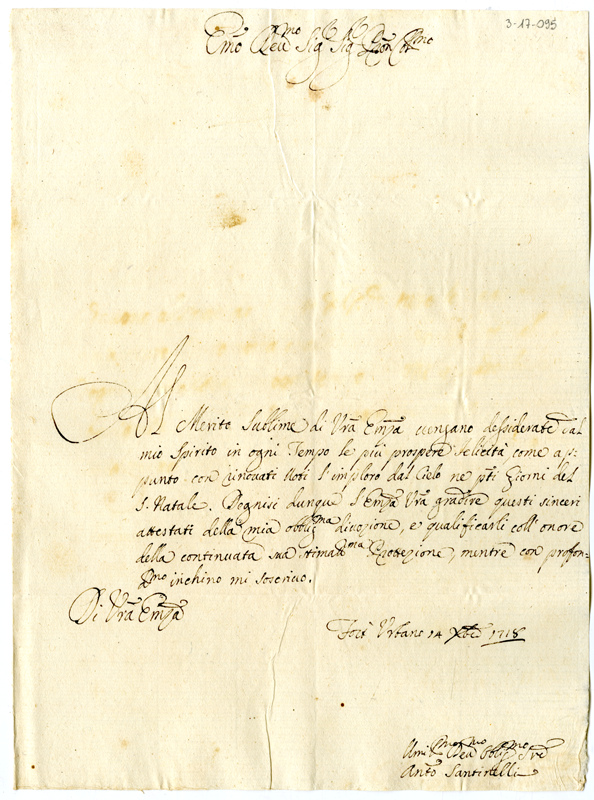 3-17-095
Emo Reumo Sig Sig Pron Colmo
Al Merito Sublime di Vra Emza uengano dessiderate dal
mio Spirito in ogni Tempo le più prospere felicità come ap:
punto con rinouati Uoti l'imploro dal Cielo ne pnti Giorni del
S. Natale. Degnisi dunque l'Emza Vra gradire questi sinceri
attestati della mia obbligma diuozione, e qualificarli coll'onore
della continuata sua stimatma Protezione, mentre con profon=
dmo inchino mi soscriuo.
Di Vra Emza
Fort' Urbano 14 Xbre 1718
Umilmo Deumo Obblmo Sre
Anto Santinelli